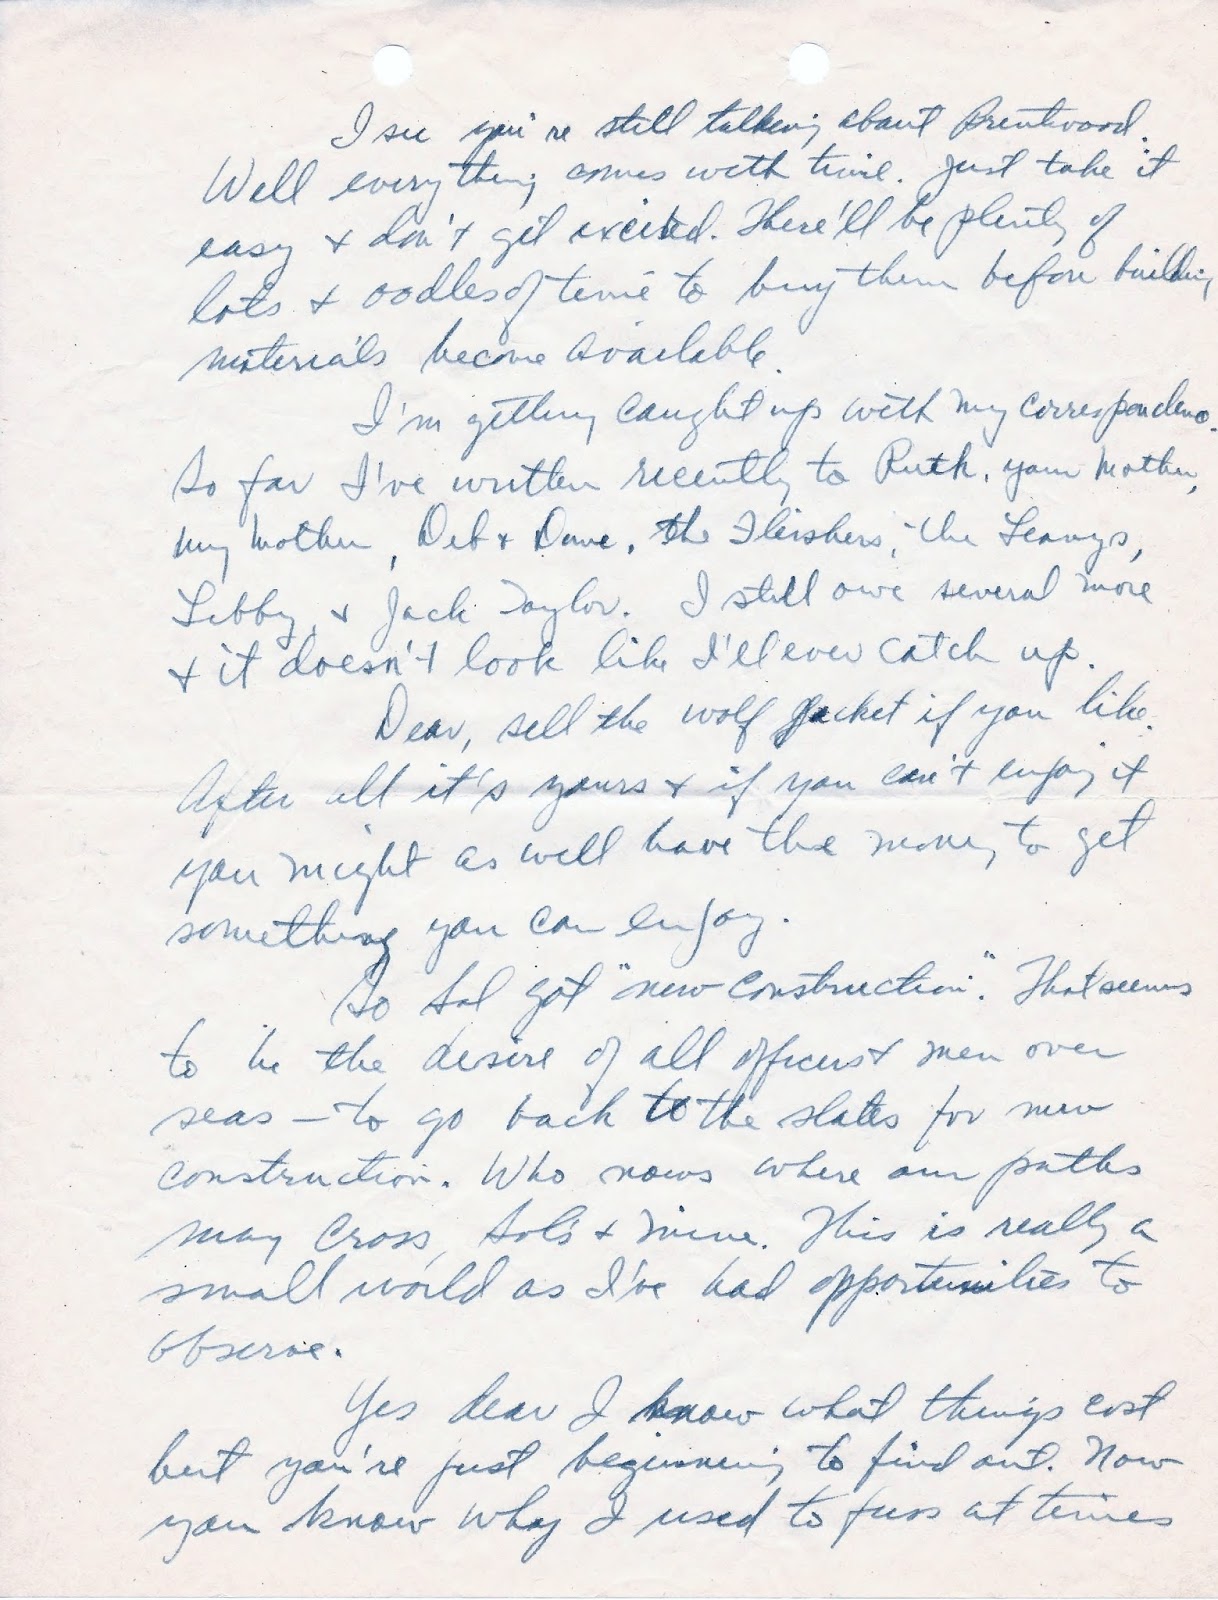 I see you're still talking about Brentwood.
Well everything comes with time. Just take it
easy + don't get excited. There'll be plenty of
lots + oodles of time to buy them before building
materials become available.
I'm getting caught up with my correspondence.
So far I've written recently to Ruth, your Mother,
my Mother, Deb + Dave, the Fleishers, the Leavys,
Libby, + Jack Taylor. I still owe several more
+ it doesn't look like I'll ever catch up.
Dear, sell the wolf jacket if you like.
After all it's yours + if you can't enjoy it
you might as well have the money to get
something you can enjoy.
So Sol got "new construction". That seems
to be the desire of all officers + men over
seas — to go back to the states for new
construction. Who nows where our paths
may cross, Sol's + mine. This is really a
small world as I've had opportunities to
observe.
Yes dear I know what things cost
but you're just beginning to find out. Now
you know why I used to fuss at times